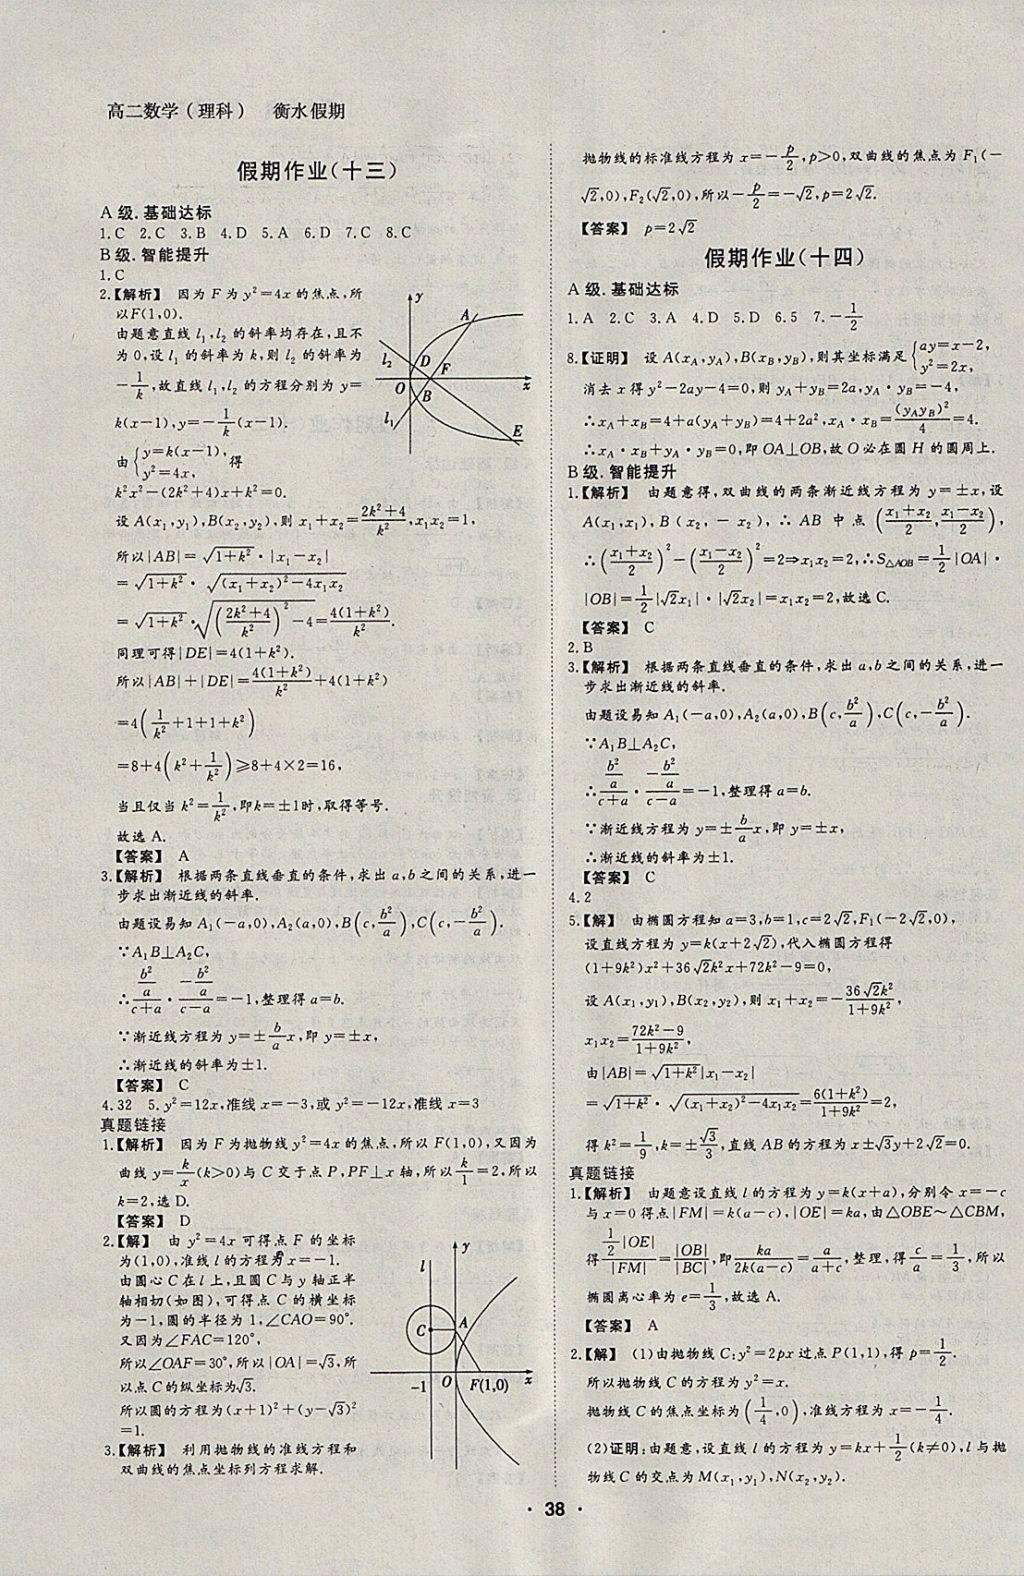 高二数学(理科) 衡水假期
假期作业(十三)
A级.基础达标
1.C 2.C 3.B 4.D 5.A 6.D 7.C 8.C
B级.智能提升
1.C
2.【解析】 因为F为y²=4x的焦点,所
以F(1,0).
由题意直线l₁,l₂的斜率均存在,且不
为0,设l₁的斜率为k,则l₂的斜率为
-1/k,故直线l₁,l₂的方程分别为y=
k(x-1),y=-1/k(x-1).
由{y=k(x-1), y²=4x,得
k²x²-(2k²+4)x+k²=0.
设A(x₁,y₁),B(x₂,y₂),则x₁+x₂=(2k²+4)/k²,x₁x₂=1,
所以|AB|=√(1+k²)·|x₁-x₂|
=√(1+k²)·√((x₁+x₂)²-4x₁x₂)
=√(1+k²)·√(((2k²+4)/k²)²-4)=4(1+k²)/k².
同理可得|DE|=4(1+k²).
所以|AB|+|DE|=4(1+k²)/k²+4(1+k²)
=4(1/k²+1+1+k²)
=8+4(k²+1/k²)≥8+4×2=16,
当且仅当k²=1/k²,即k=±1时,取得等号.
故选A.
【答案】 A
3.【解析】 根据两条直线垂直的条件,求出a,b之间的关系,进一
步求出渐近线的斜率.
由题设易知A₁(-a,0),A₂(a,0),B(c,b²/a),C(c,-b²/a).
∵A₁B⊥A₂C,
∴(b²/a)/(c+a)·(-b²/a)/(c-a)=-1,整理得a=b.
∵渐近线方程为y=±b/a x,即y=±x,
∴渐近线的斜率为±1.
【答案】 C
4.32 5.y²=12x,准线x=-3,或y²=-12x,准线x=3
真题链接
1.【解析】 因为F为抛物线y²=4x的焦点,所以F(1,0),又因为
曲线y=k/x(k>0)与C交于点P,PF⊥x轴,所以k/1=2,所以
k=2,选D.
【答案】 D
2.【解】 由y²=4x可得点F的坐标
为(1,0),准线l的方程为x=-1.
由圆心C在l上,且圆C与y轴正半
轴相切(如图),可得点C的横坐标
为-1,圆的半径为1,∠CAO=90°.
又因为∠FAC=120°,
所以∠OAF=30°,所以|OA|=√3,所
以点C的纵坐标为√3.
所以圆的方程为(x+1)²+(y-√3)²
=1.
3.【解析】 利用抛物线的准线方程和
双曲线的焦点坐标列方程求解.
y
A
l₂
D
F
O
B
x
l₁
E
l
y
C
A
-1
O
F(1,0)
x
抛物线的标准线方程为x=-p/2,p>0,双曲线的焦点为F₁(-
√2,0),F₂(√2,0),所以-p/2=-√2,p=2√2.
【答案】 p=2√2
假期作业(十四)
A级.基础达标
1.A 2.C 3.A 4.D 5.D 6.5 7.-1/2
8.【证明】 设A(x_A,y_A),B(x_B,y_B),则其坐标满足{ay=x-2, y²=2x,
消去x得y²-2ay-4=0,则y_A+y_B=2a,y_A·y_B=-4,
∴x_A+x_B=4+a(y_A+y_B)=4+2a²,x_A·x_B=(y_Ay_B)²/4=4.
∴x_A·x_B+y_A·y_B=0,即OA⊥OB,故O必在圆H的圆周上.
B级.智能提升
1.【解析】 由题意得,双曲线的两条渐近线方程为y=±x,设
A(x₁,x₁),B(x₂,-x₂),∴AB中点((x₁+x₂)/2,(x₁-x₂)/2),
∴((x₁+x₂)/2)²-((x₁-x₂)/2)²=2⇒x₁x₂=2,∴S△AOB=1/2|OA|·
|OB|=1/2|√2x₁|·|√2x₂|=x₁x₂=2,故选C.
【答案】 C
2.B
3.【解析】 根据两条直线垂直的条件,求出a,b之间的关系,进一
步求出渐近线的斜率.
由题设易知A₁(-a,0),A₂(a,0),B(c,b²/a),C(c,-b²/a).
∵A₁B⊥A₂C,
∴(b²/a)/(c+a)·(-b²/a)/(c-a)=-1,整理得a=b.
∵渐近线方程为y=±b/a x,即y=±x,
∴渐近线的斜率为±1.
【答案】 C
4.2
5.【解】 由椭圆方程知a=3,b=1,c=2√2,F₁(-2√2,0),
设直线方程为y=k(x+2√2),代入椭圆方程得
(1+9k²)x²+36√2k²x+72k²-9=0,
设A(x₁,y₁),B(x₂,y₂),则x₁+x₂=-36√2k²/(1+9k²),
x₁x₂=(72k²-9)/(1+9k²),
由|AB|=√(1+k²)|x₁-x₂|
=√(1+k²)·√((x₁+x₂)²-4x₁x₂)=6(1+k²)/(1+9k²)=2,
得k²=1/9,k=±√3/3,直线AB的方程为x±√3y+2√2=0.
真题链接
1.【解析】 由题意设直线l的方程为y=k(x+a),分别令x=-c
与x=0得点|FM|=k(a-c),|OE|=ka,由△OBE∽△CBM,
得(1/2|OE|)/|FM|=|OB|/|BC|,即ka/(2k(a-c))=a/(a+c),整理,得c/a=1/3,所以
椭圆离心率为e=1/3,故选A.
【答案】 A
2.【解】 (1)由抛物线C:y²=2px过点P(1,1),得p=1/2.
所以抛物线C的方程为y²=x.
抛物线C的焦点坐标为(1/4,0),准线方程为x=-1/4.
(2)证明:由题意,设直线l的方程为y=kx+1/2(k≠0),l与抛
物线C的交点为M(x₁,y₁),N(x₂,y₂).
· 38 ·